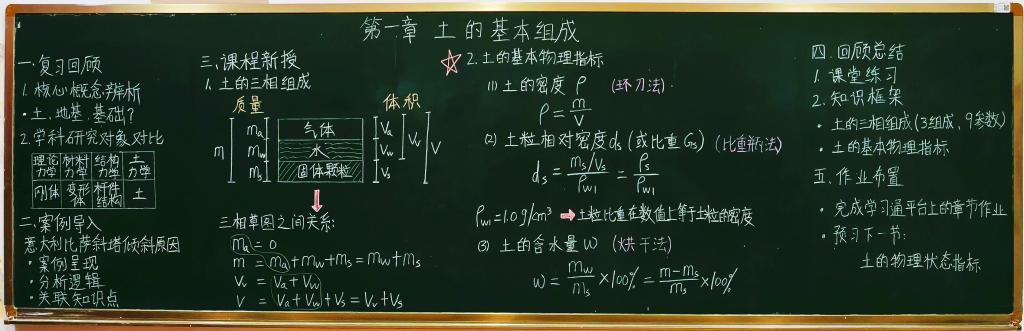 第一章 土的基本组成
一.复习回顾
1. 核心概念辨析
·土、地基、基础?
2.学科研究对象对比
理论力学 材料力学 结构力学 土力学
刚体 变形体 杆件结构 土
二.案例导入
意大利比萨斜塔倾斜原因
·案例呈现
·分析逻辑
·关联知识点
三.课程新授
1. 土的三相组成
质量 体积
m
ma 气体 Va
mw 水 Vw
ms 固体颗粒 Vs
Vv
V
三相草图之间关系:
ma = 0
m = ma+mw+ms = mw+ms
Vv = Va+Vw
V = Va+Vw+Vs = Vv+Vs
☆2.土的基本物理指标
(1) 土的密度 ρ (环刀法)
ρ = m/V
(2) 土粒相对密度ds (或比重Gs) (比重瓶法)
ds = (ms/Vs)/ρw1 = ρs/ρw1
ρw1=1.0g/cm³ ➡土粒比重在数值上等于土粒的密度
(3) 土的含水量w (烘干法)
w = mw/ms ×100% = (m-ms)/ms ×100%
四.回顾总结
1. 课堂练习
2.知识框架
·土的三相组成(3组成,9参数)
·土的基本物理指标
五.作业布置
·完成学习通平台上的章节作业
·预习下一节:
土的物理状态指标